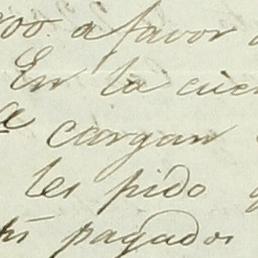 00. a favor
En la cue
cargan
les pido
pagados